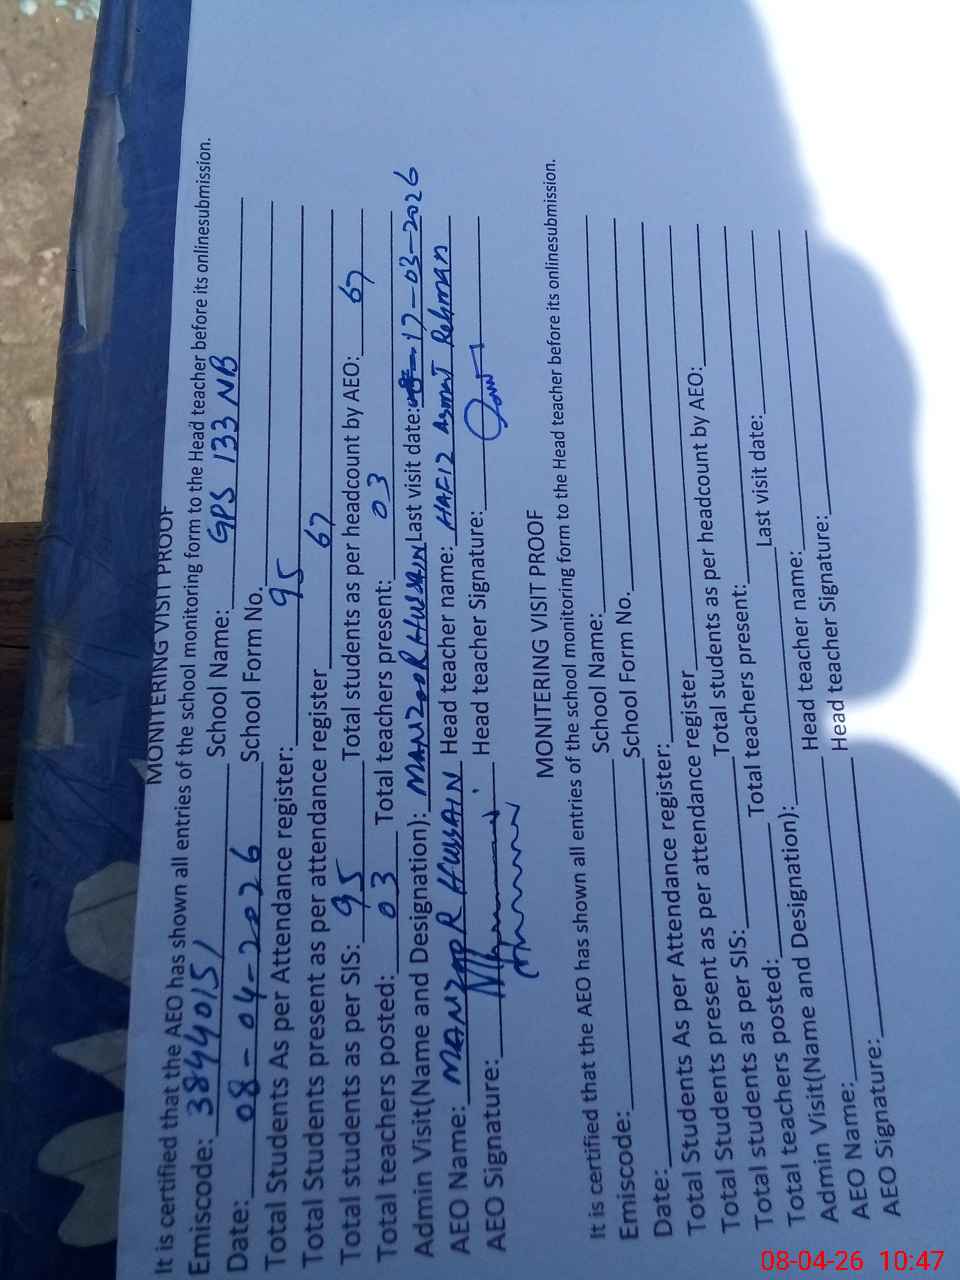 MONITERING VISIT PROOF
It is certified that the AEO has shown all entries of the school monitoring form to the Head teacher before its onlinesubmission.
Emiscode: 38440151 School Name: GPS 133 NB
Date: 08-04-2026 School Form No.
Total Students As per Attendance register: 95
Total Students present as per attendance register 67
Total students as per SIS: 95 Total students as per headcount by AEO: 67
Total teachers posted: 03 Total teachers present: 03
Admin Visit(Name and Designation): MANZOOR HUSSAIN Last visit date: 17-03-2026
AEO Name: MANZOOR HUSSAIN Head teacher name: HAFIZ Asmat Rehman
AEO Signature: Head teacher Signature:
MONITERING VISIT PROOF
It is certified that the AEO has shown all entries of the school monitoring form to the Head teacher before its onlinesubmission.
Emiscode: School Name:
Date: School Form No.
Total Students As per Attendance register:
Total Students present as per attendance register
Total students as per SIS: Total students as per headcount by AEO:
Total teachers posted: Total teachers present:
Admin Visit(Name and Designation): Last visit date:
AEO Name: Head teacher name:
AEO Signature: Head teacher Signature:
08-04-26 10:47